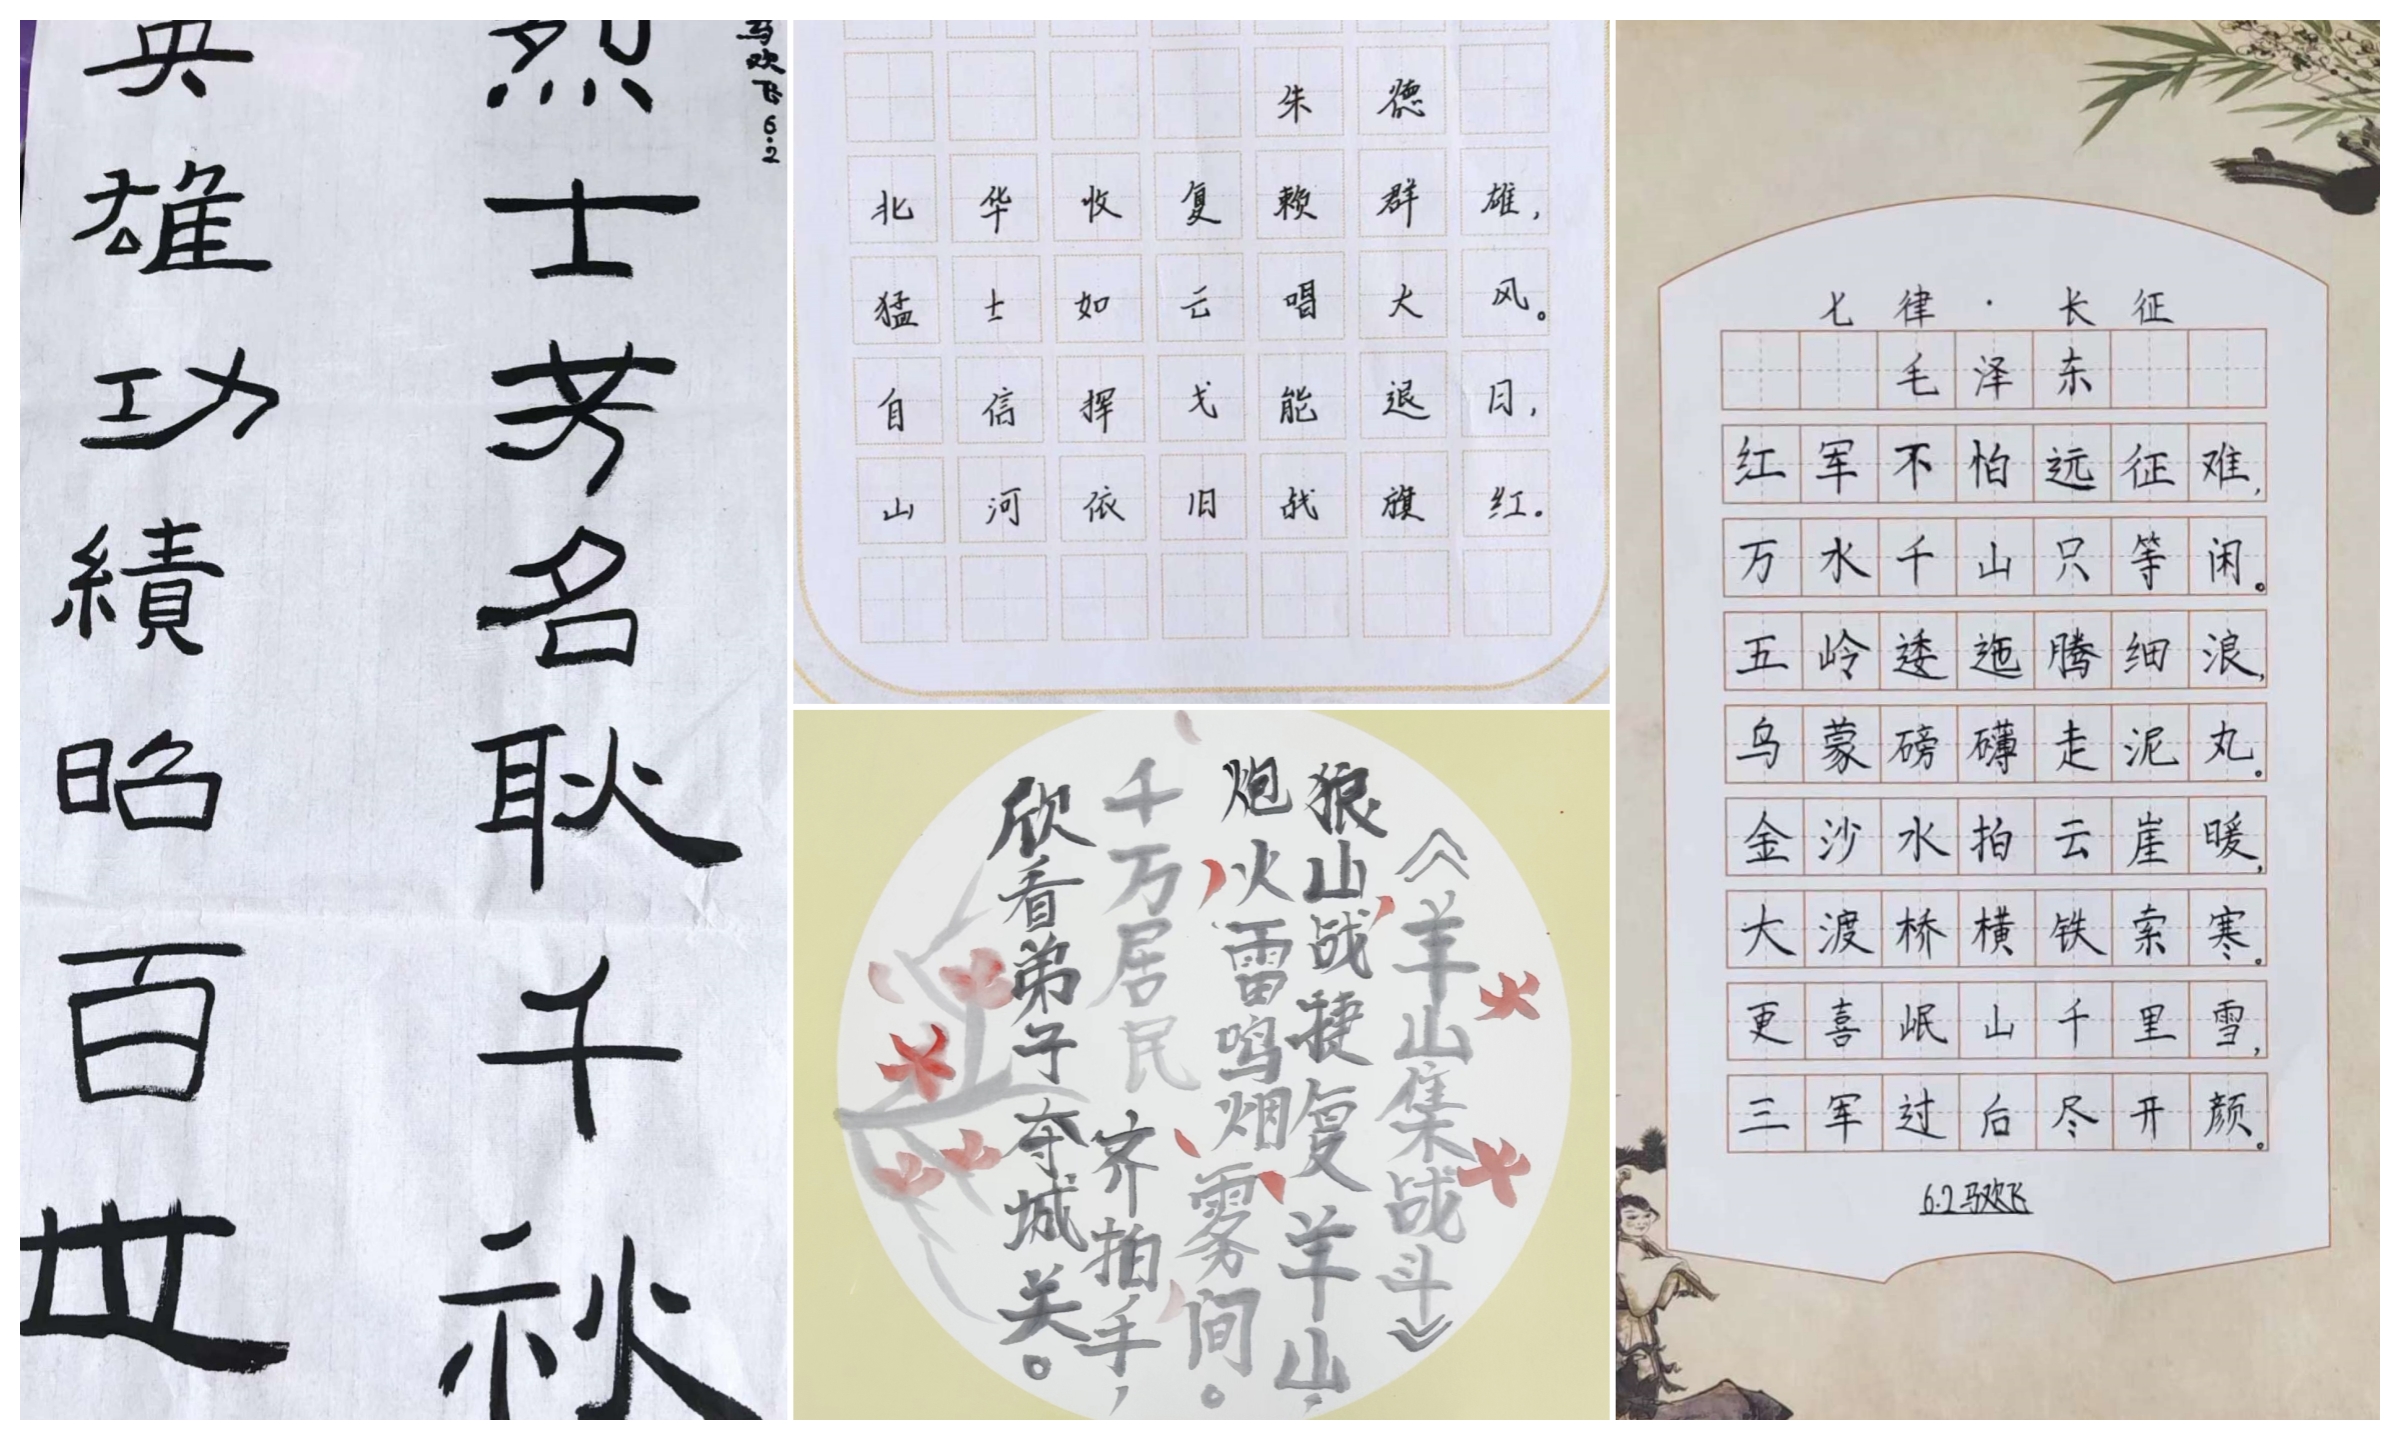 马欢飞 6.2
烈士芳名耿千秋
英雄功績昭百世
朱德
北华收复赖群雄,
猛士如云唱大风。
自信挥戈能退日,
山河依旧战旗红。
《羊山集战斗》
狼山战捷复羊山,
炮火雷鸣烟雾间。
千万居民齐拍手,
欣看弟子夺城关。
七律·长征
毛泽东
红军不怕远征难,
万水千山只等闲。
五岭逶迤腾细浪,
乌蒙磅礴走泥丸。
金沙水拍云崖暖,
大渡桥横铁索寒。
更喜岷山千里雪,
三军过后尽开颜。
6.2 马欢飞